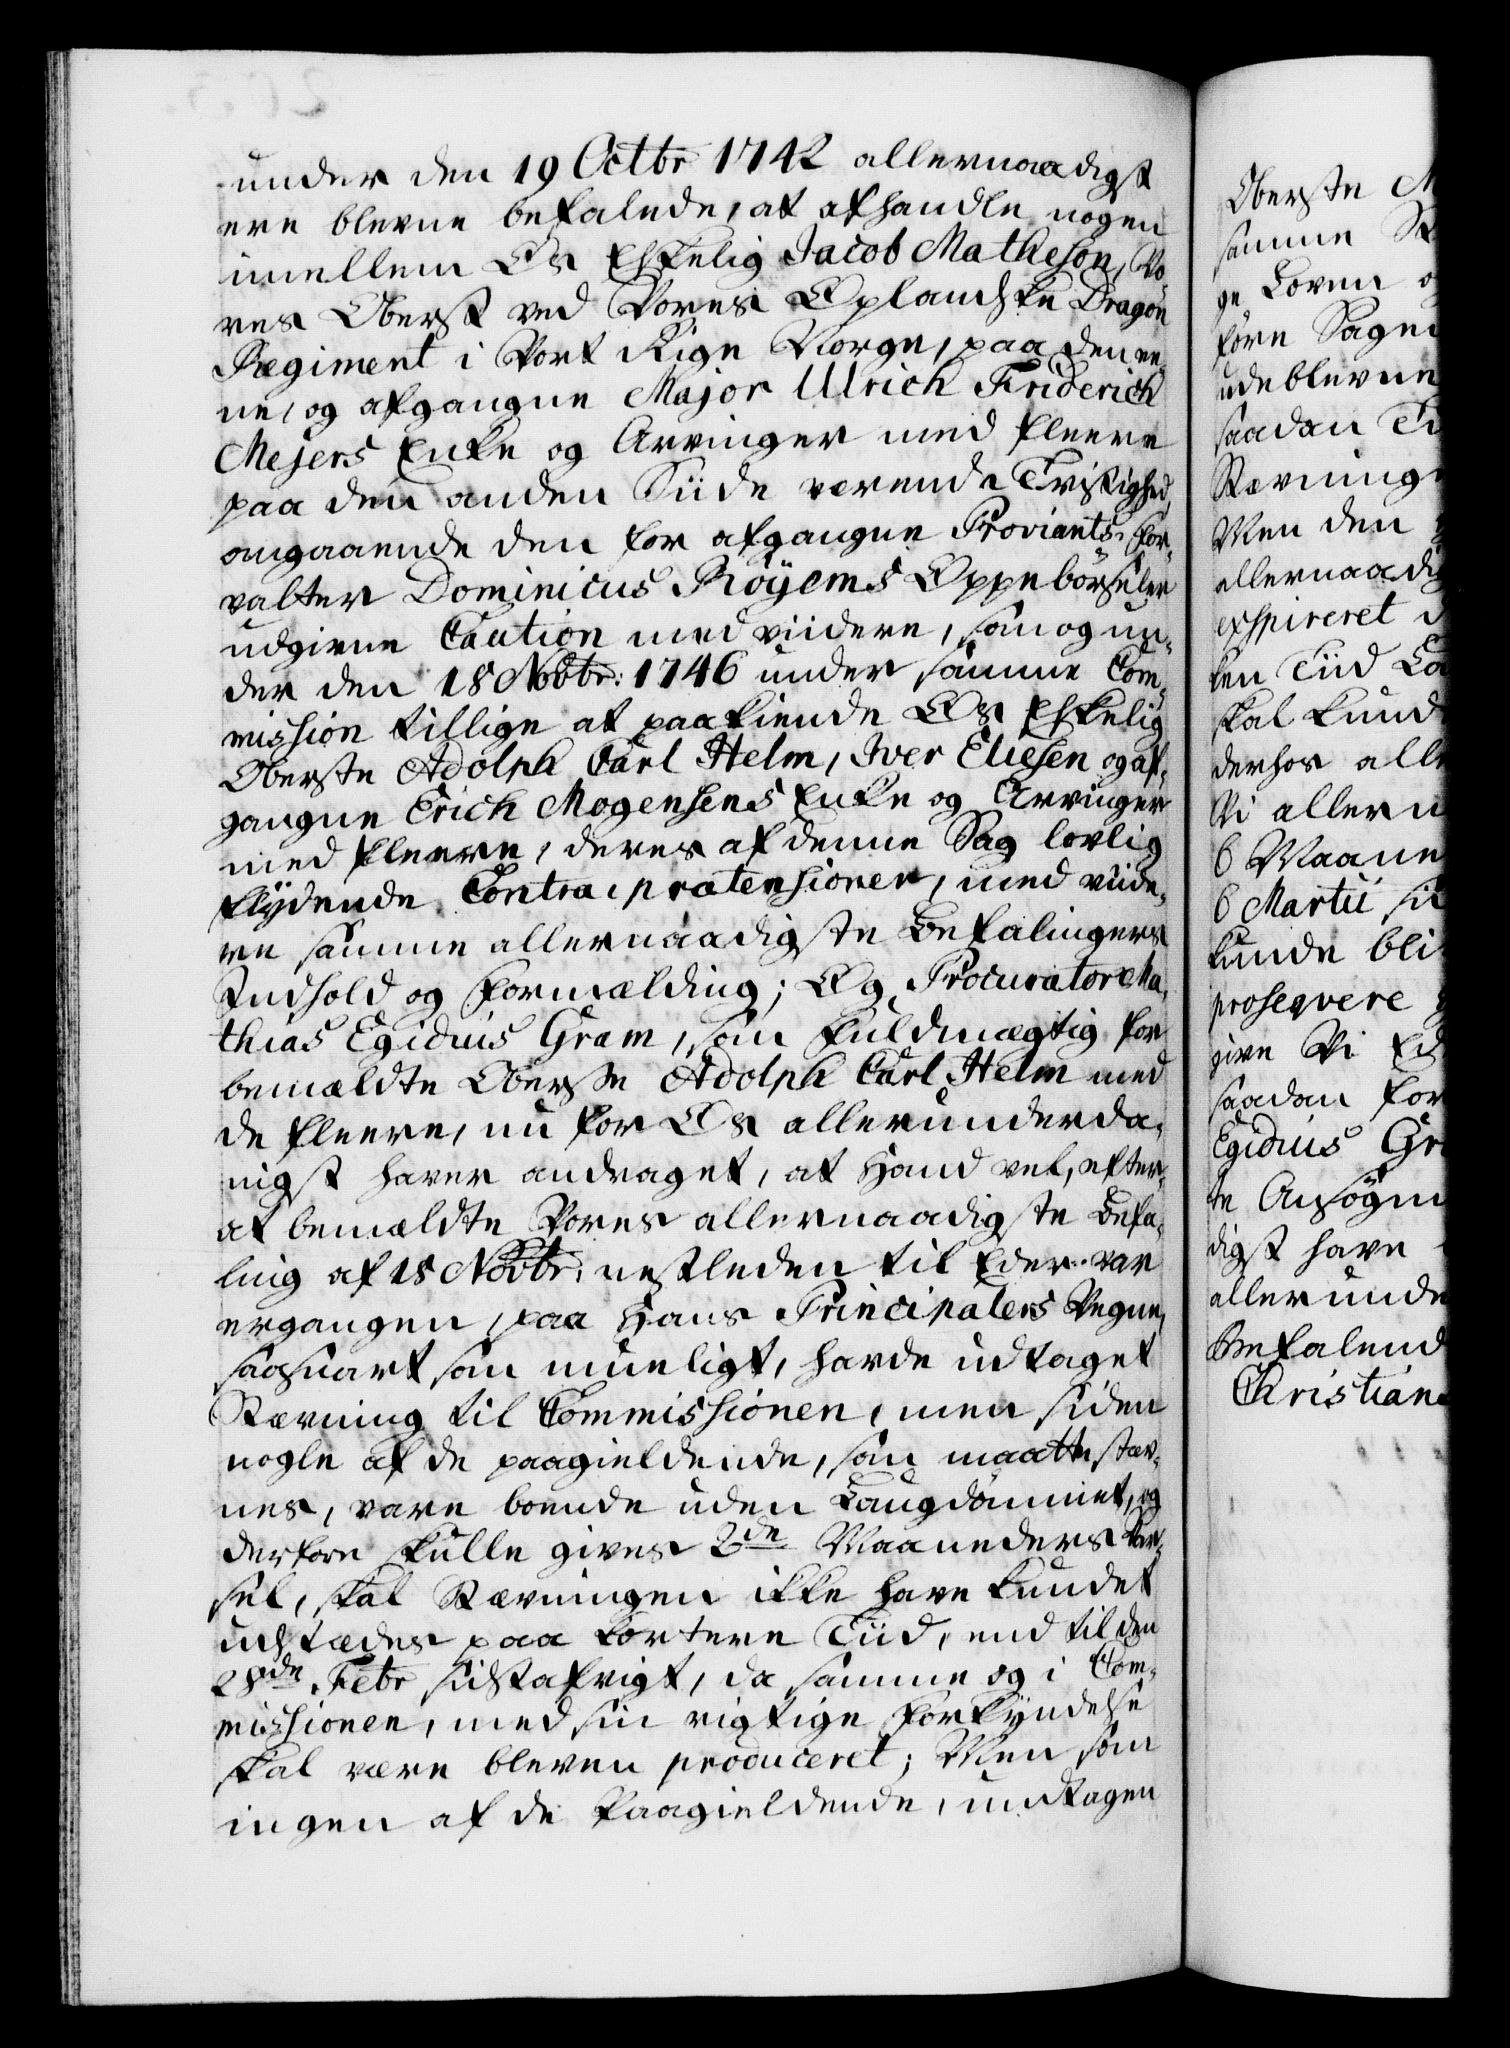 under den 19 Octbr 1742 allernaadigst
ere blevne befalede, at afhandle nogen
imellem Os Elskelig Jacob Matheson, Vo-
res Oberst ved Vores Oplandske Dragon
Regiment i Vort Rige Norge, paa den ee-
ne, og afgangne Major Ulrich Friderich
Mejers Enke og Arvinger med fleere
paa den anden Siide værende Tvistighed,
angaaende den for afgangne Proviants-For-
valter Dominicus Röyems Oppebörseler
udgivne Caution med viidere, som og un-
der den 18 Novbr: 1746 under samme Com-
mission tillige at paakiende Os Elskelig
Oberste Adolph Carl Helm, Iver Eliesen og af-
gangne Erich Mogensens Enke og Arvinger
med fleere, deres af denne Sag lovlig
flydende Contra-prætensioner, med viide-
re samme allernaadigste Befalingers
Indhold og Formælding; Og Procurator Ma-
thias Egidius Gram, som Fuldmægtig for
bemældte Oberste Adolph Carl Helm med
de fleere, nu for Os allerunderda-
nigst haver andraget, at Hand vel, efter-
at bemældte Vores allernaadigste Befa-
ling af 18 Novbr: nestleden til Eder var
ergangen, paa Hans Principalers Vegne,
saasnart som mueligt, havde udtaget
Stævning til Commissionen, men siden
nogle af de paagieldende, som maatte stæv-
nes, vare boende uden Laugdömmet, og
derfore skulle gives 2de Maaneders Var-
sel, skal Stævningen ikke have kundet
udstædes paa kortere Tiid, end til den
28de Febr sidstafvigt, da samme og i Com-
missionen, med sin rigtige Forkyndelse
skal være bleven produceret; Men som
ingen af de Paagieldende, undtagen
Oberste M
samme
ge Loven o
före Sagen
udeblevne
saadan Ti
Stævninge
Men den
allernaadig
exspireret d
ken Tiid
skal kund
derhos alle
Vi allern
6 Maane
6 Martii si
kunde bli
proseqvere
give Vi Ed
saadan for
Egidius Gra
te Ansögn
digst have
allerunde
Befalend
Christian